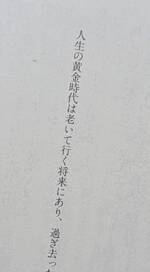 人生の黄金時代は老いて行く将来にあり、過ぎ去っ